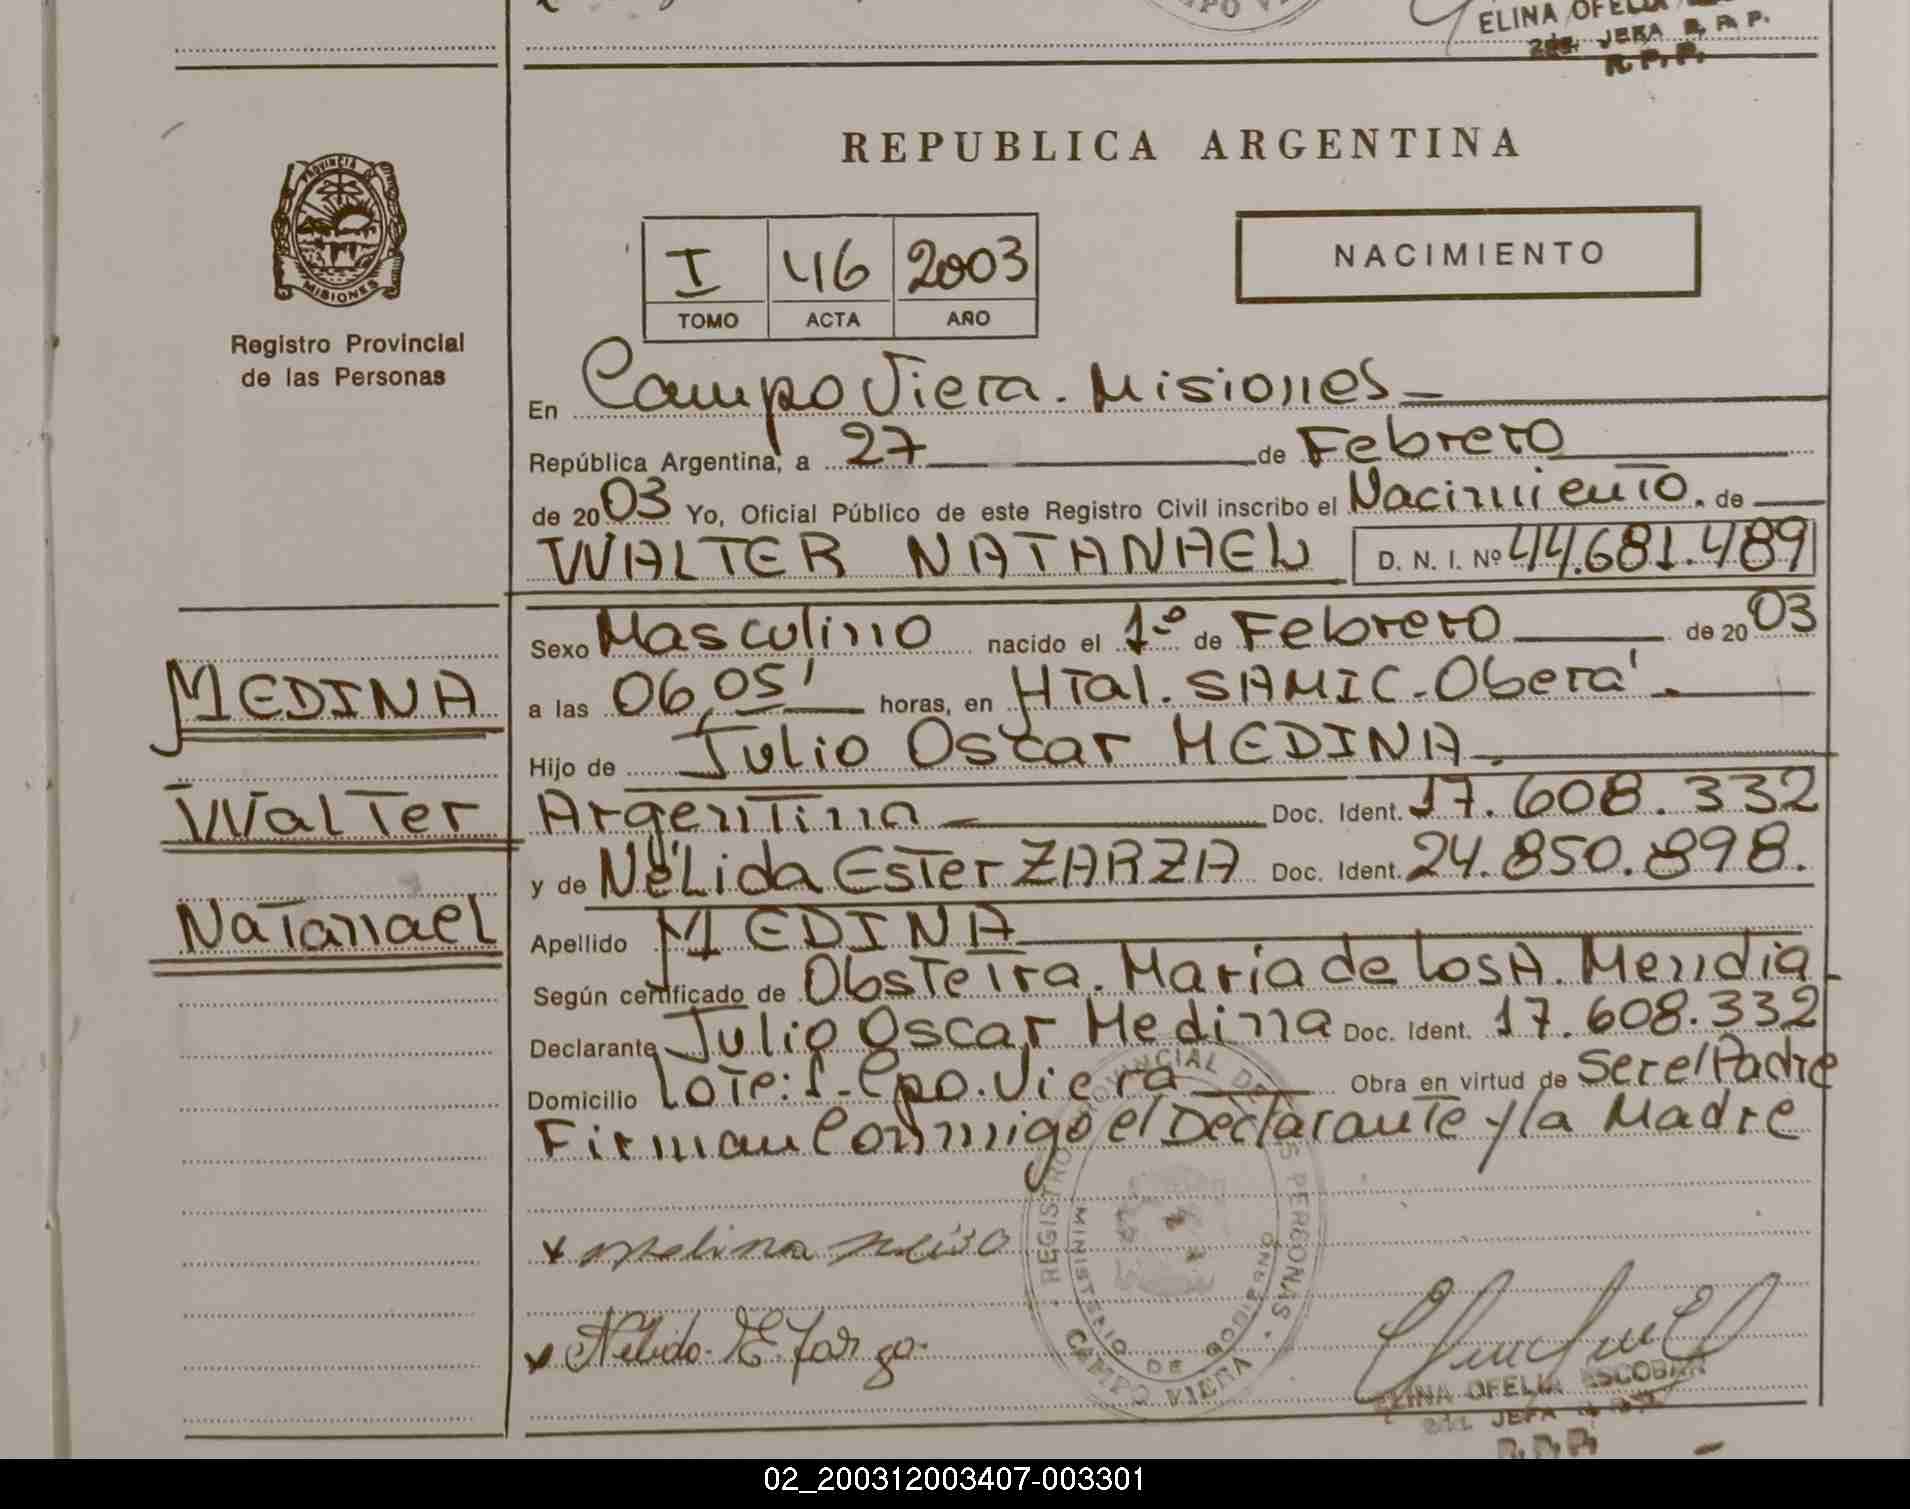 ELINA OFELIA
2da. JEFA R. P. P.
R. P. P.
REPUBLICA ARGENTINA
PROVINCIA DE
MISIONES
Registro Provincial
de las Personas
I 46 2003
TOMO ACTA AÑO
NACIMIENTO
En Campo Viera. Misiones
República Argentina, a 27 de Febrero
de 2003 Yo, Oficial Público de este Registro Civil inscribo el Nacimiento. de
WALTER NATANAEL D. N. I. Nº 44.681.489
Sexo Masculino nacido el 1º de Febrero de 2003
a las 06,05' horas, en HTal. SAMIC-Oberá
Hijo de Julio Oscar MEDINA
Argentina Doc. Ident. 17.608.332
y de Nélida Ester ZARZA Doc. Ident. 24.850.898.
Apellido MEDINA
Según certificado de Obstetra. María de los A. Mendia
Declarante Julio Oscar Medina Doc. Ident. 17.608.332
Domicilio Lote: 1-Cpo. Viera Obra en virtud de Ser el Padre
Firman Conmigo el Declarante y la Madre
MEDINA
Walter
Natanael
REGISTRO PROVINCIAL DE LAS PERSONAS
MINISTERIO DE GOBIERNO
CAMPO VIERA
Nélida E. Zarza
ELINA OFELIA ESCOBAR
2da. JEFA
R. P. P.
02_200312003407-003301